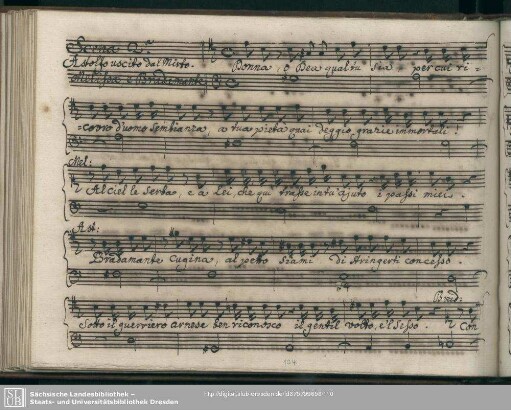 Scena 2.a
Astolfo uscito dal Mirto.
Donna, o Dea qual tu sia per cui ri-
-corro d'uomo sembianza, a tua pietà quai deggio grazie immortali!
Mel:
Al ciel le serba, e a Lei, che qui trasse in tu' ajuto i passi miei.
Ast:
Bradamante Cugina, al petto siami di stringerti concesso.
Brad:
Sotto il guerriero arnese ben riconosco il gentil volto, e 'l sesso. Con
124
Sächsische Landesbibliothek –
Staats- und Universitätsbibliothek Dresden